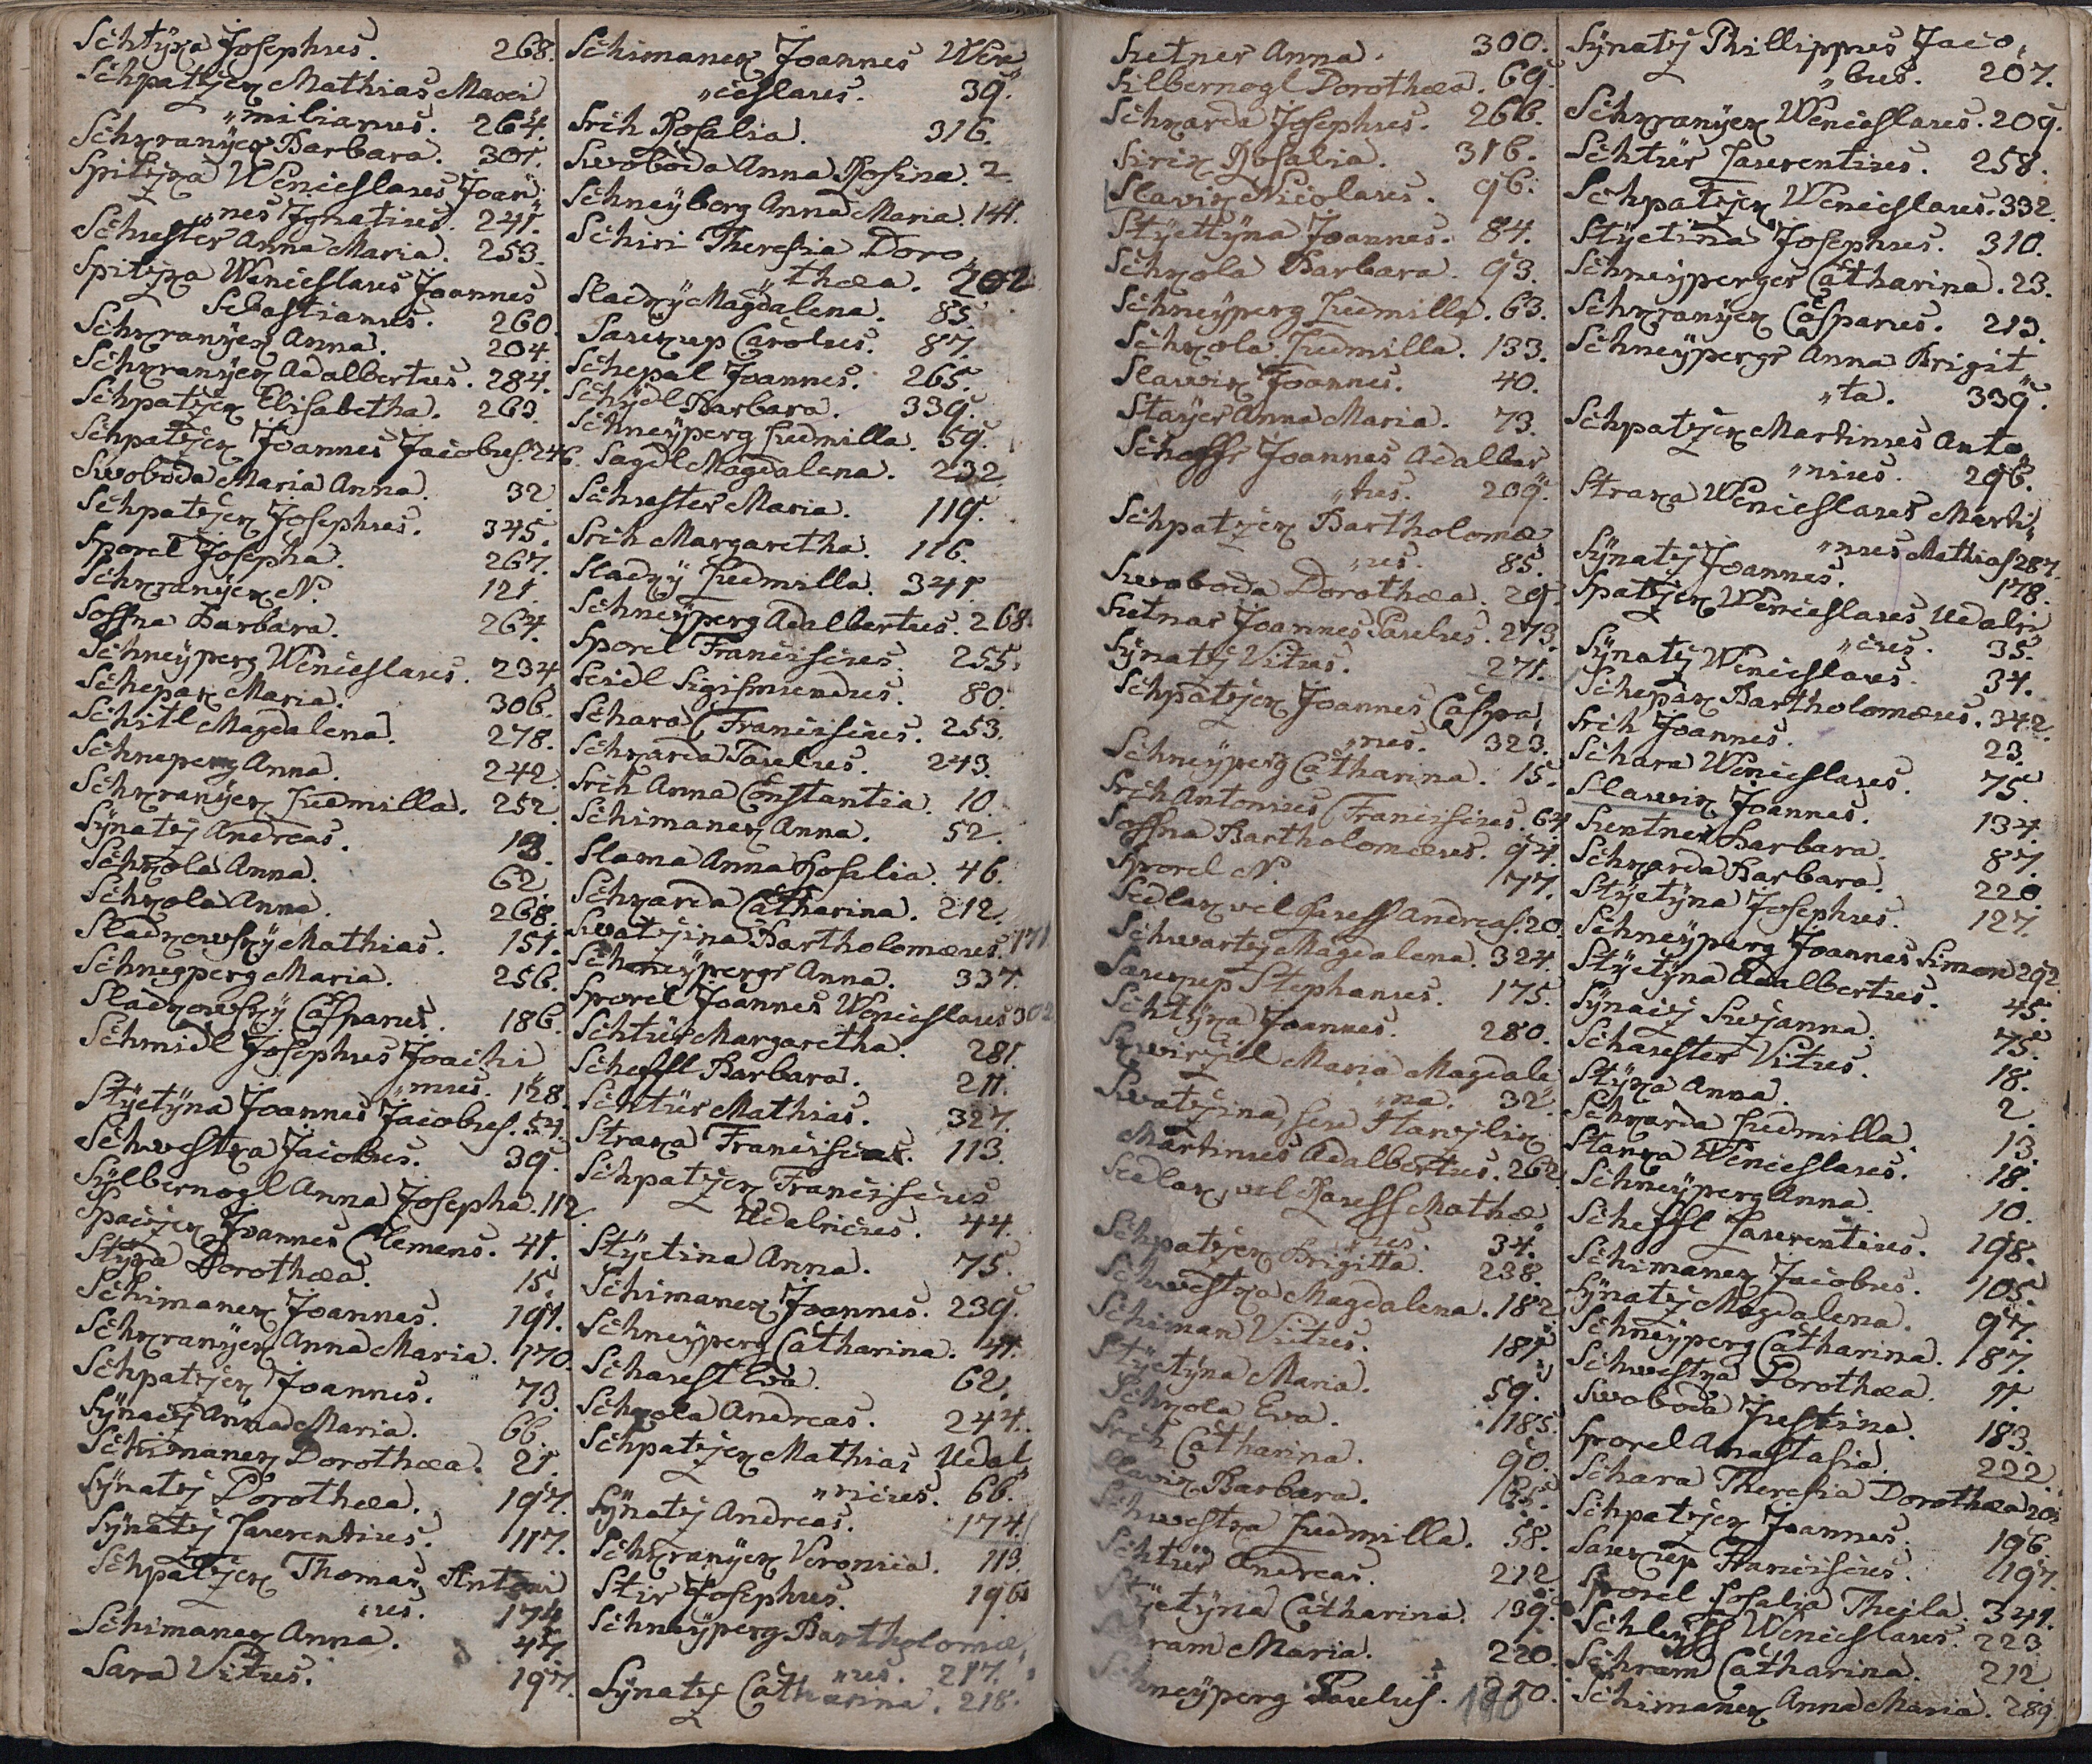 Schtÿka Josephus. 268.
Schpatzek Mathias Maxi
„milianus. 264.
Schkranÿek Barbara. 301.
Spitzka Wenceslaus Joan„
„nes Ignatius. 241.
Schuster Anna Maria. 253.
Spitzka Wenceslaus Joannes
Sebastianus. 260.
Schkranÿek Anna. 204.
Schkranÿek Adalbertus. 284.
Schpatzek Elisabetha. 263.
Schpatzek Joannes Jacobus. 246.
Swoboda Maria Anna. 32.
Schpatzek Josephus. 345.
Sporel Josepha. 267.
Schkranÿek N. 121.
Sossna Barbara. 264.
Schneÿperg Wenceslaus. 234
Schepak Maria. 306.
Schitl Magdalena. 278.
Schneperg Anna. 242.
Schkranÿek Ludmilla. 252.
Sÿnatz Andreas. 13.
Schkola Anna. 62.
Schkola Anna. 268.
Sladkowskÿ Mathias. 151.
Schnegperg Maria. 256.
Sladkowskÿ Casparus. 186.
Schmidl Josephus Joachi
„mus. 128.
Stÿctÿna Joannes Jacobus. 54.
Schwestka Jacobus. 39.
Sÿlbernogl Anna Josepha. 112.
Spaczek Joannes Clemens. 41.
Dorothæa. 15.
Schimanek Joannes. 191.
Schkranÿek Anna Maria. 170.
Schpatzek Joannes. 73.
Sÿnacz Anna Maria. 66
Schimanek Dorothæa. 21.
Sÿnatz Dorothæa. 197.
Sÿnatz Laurentius. 117.
Schpatzek Thomas Antoni
„us. 174
Schimanek Anna. 47.
Sara Vitus. 197.
Schimanek Joannes Wen„
„ceslaus. 39.
Srch Rosalia. 316.
Swoboda Anna Rosina. 2.
Schneÿberg Anna Maria. 141.
Schiri Theresia Doro„
„thæa. 202
Sladkÿ Magdalena. 85.
Saukup Carolus. 87.
Schepal Joannes. 265.
Schÿdl Barbara. 339.
Schneÿperg Ludmilla. 59.
Sagdl Magdalena. 232.
Schuster Maria. 119.
Srch Margaretha. 116.
Sladkÿ Ludmilla. 341.
Schneÿperg Adalbertus. 268.
Sporel Franciscus. 255.
Seidl Sigismundus. 80.
Schara Franciscus. 253.
Schkarda Paulus. 243.
Srch Anna Constantia. 10.
Schimanek Anna. 52.
Slama Anna Rosalia. 46.
Schkarda Catharina. 212.
Swatzina Bartholomæus. 171
Schneÿpergr Anna. 337.
Sporel Joannes Wenceslaus 302
Schtür Margaretha. 281.
Scheffl Barbara. 211.
Schtür Mathias. 327.
Straka Franciscus. 113.
Schpatzek Franciscus
Udalricus. 44.
Stÿctina Anna. 75.
Schimanek Joannes. 239.
Schneÿperg Catharina. 41.
Schaust Eva. 62.
Schkola Andreas. 244.
Schpatzek Mathias Udal„
„ricus. 66.
Sÿnatz Andreas. 174.
Schkranÿek Veronica. 113.
Stir Josephus. 196
Schneÿperg Bartholomæ„
„us. 217.
Sÿnatz Catharina. 218.
Sutner Anna. 300.
Silbernogl Dorothæa. 69.
Schkarda Josephus. 266.
Sirik Rosalia. 316.
Slavik Nicolaus. 96.
Stÿcttÿna Joannes. 84.
Schkola Barbara. 93.
Schneÿperg Ludmilla. 63.
Schkola Ludmilla. 133.
Slawik Joannes. 40.
Staÿer Anna Maria. 73.
Schaffr Joannes Adalber
„tus. 209.
Schpatzek Bartholomæ
„us. 85.
Swoboda Dorothæa. 29.
Sutnar Joannes Paulus. 273.
Sÿnatz Vitus. 271.
Schpatzek Joannes Caspa„
„rus. 323.
Schneÿperg Catharina. 15.
Srch Antonius Franciscus. 64
Sossna Bartholomæus. 94.
Sporel N. 77.
Sedlak vel Andreas. 20.
Schwartz Magdalena. 324.
Saukup Stephanus. 175.
Schtÿka Joannes. 280.
Maria Magdale
„na. 32.
Swatzina, seu
Martinus Adalbertus. 262.
Sedlak, vel Mathæ„
„us. 34.
Schpatzek Brigitta. 238.
Schwestka Magdalena. 182.
Schiman Vitus. 181.
Stÿctÿna Maria. 59.
Schkola Eva. 185.
Srch Catharina. 90.
Slavik Barbara. 65.
Schwestka Ludmilla. 58.
Schtür Andreas. 212
Stÿctÿna Catharina. 139.
Schram Maria. 220.
Schneÿperg Paulus. 180
Sÿnatz Phillippus Jaco„
„bus. 207.
Schkranÿek Wenceslaus. 209.
Schtür Laurentius. 258.
Schpatzek Wenceslaus. 332.
Stÿctina Josephus. 310.
Schneÿperger Catharina. 23.
Schkranÿek Casparus. 213.
Schneÿpergr Anna Brigit„
„ta. 339.
Schpatzek Martinus Anto„
„nius. 296.
Straka Wenceslaus Marti„
„nus Mathias 287.
Sÿnatz Joannes. 178.
Spatzek Wenceslaus Udalri
„cus. 35.
Sÿnatz Wenceslaus. 34.
Schepak Bartholomæus. 342.
Srch Joannes. 23.
Schara Wenceslaus. 75.
Slawik Joannes. 134.
Suntner Barbara. 87.
Schkarda Barbara. 220.
Stÿctÿna Josephus. 127.
Schneÿperg Joannes Simon 292.
Stÿctÿna Adalbertus. 45.
Sÿnacz Suzanna. 75.
Schauster Vitus. 18.
Stÿka Anna. 2.
Schkarda Ludmilla. 13.
Stanka Wenceslaus. 18.
Schneÿperg Anna. 10.
Scheffl Laurentius. 198.
Schimanek Jacobus. 105.
Sÿnatz Magdalena. 97.
Schneÿperg Catharina. 87.
Schwestka Dorothæa. 11.
Swoboda Justina. 183.
Sporel Anastasia. 222.
Schara Theresia Dorothæa 20
Schpatzek Joannes. 196.
Saukup Franciscus. 197.
Sporel Rosalia Thecla. 341.
Wenceslaus. 223
Schram Catharina. 212.
Schimanek Anna Maria. 289.